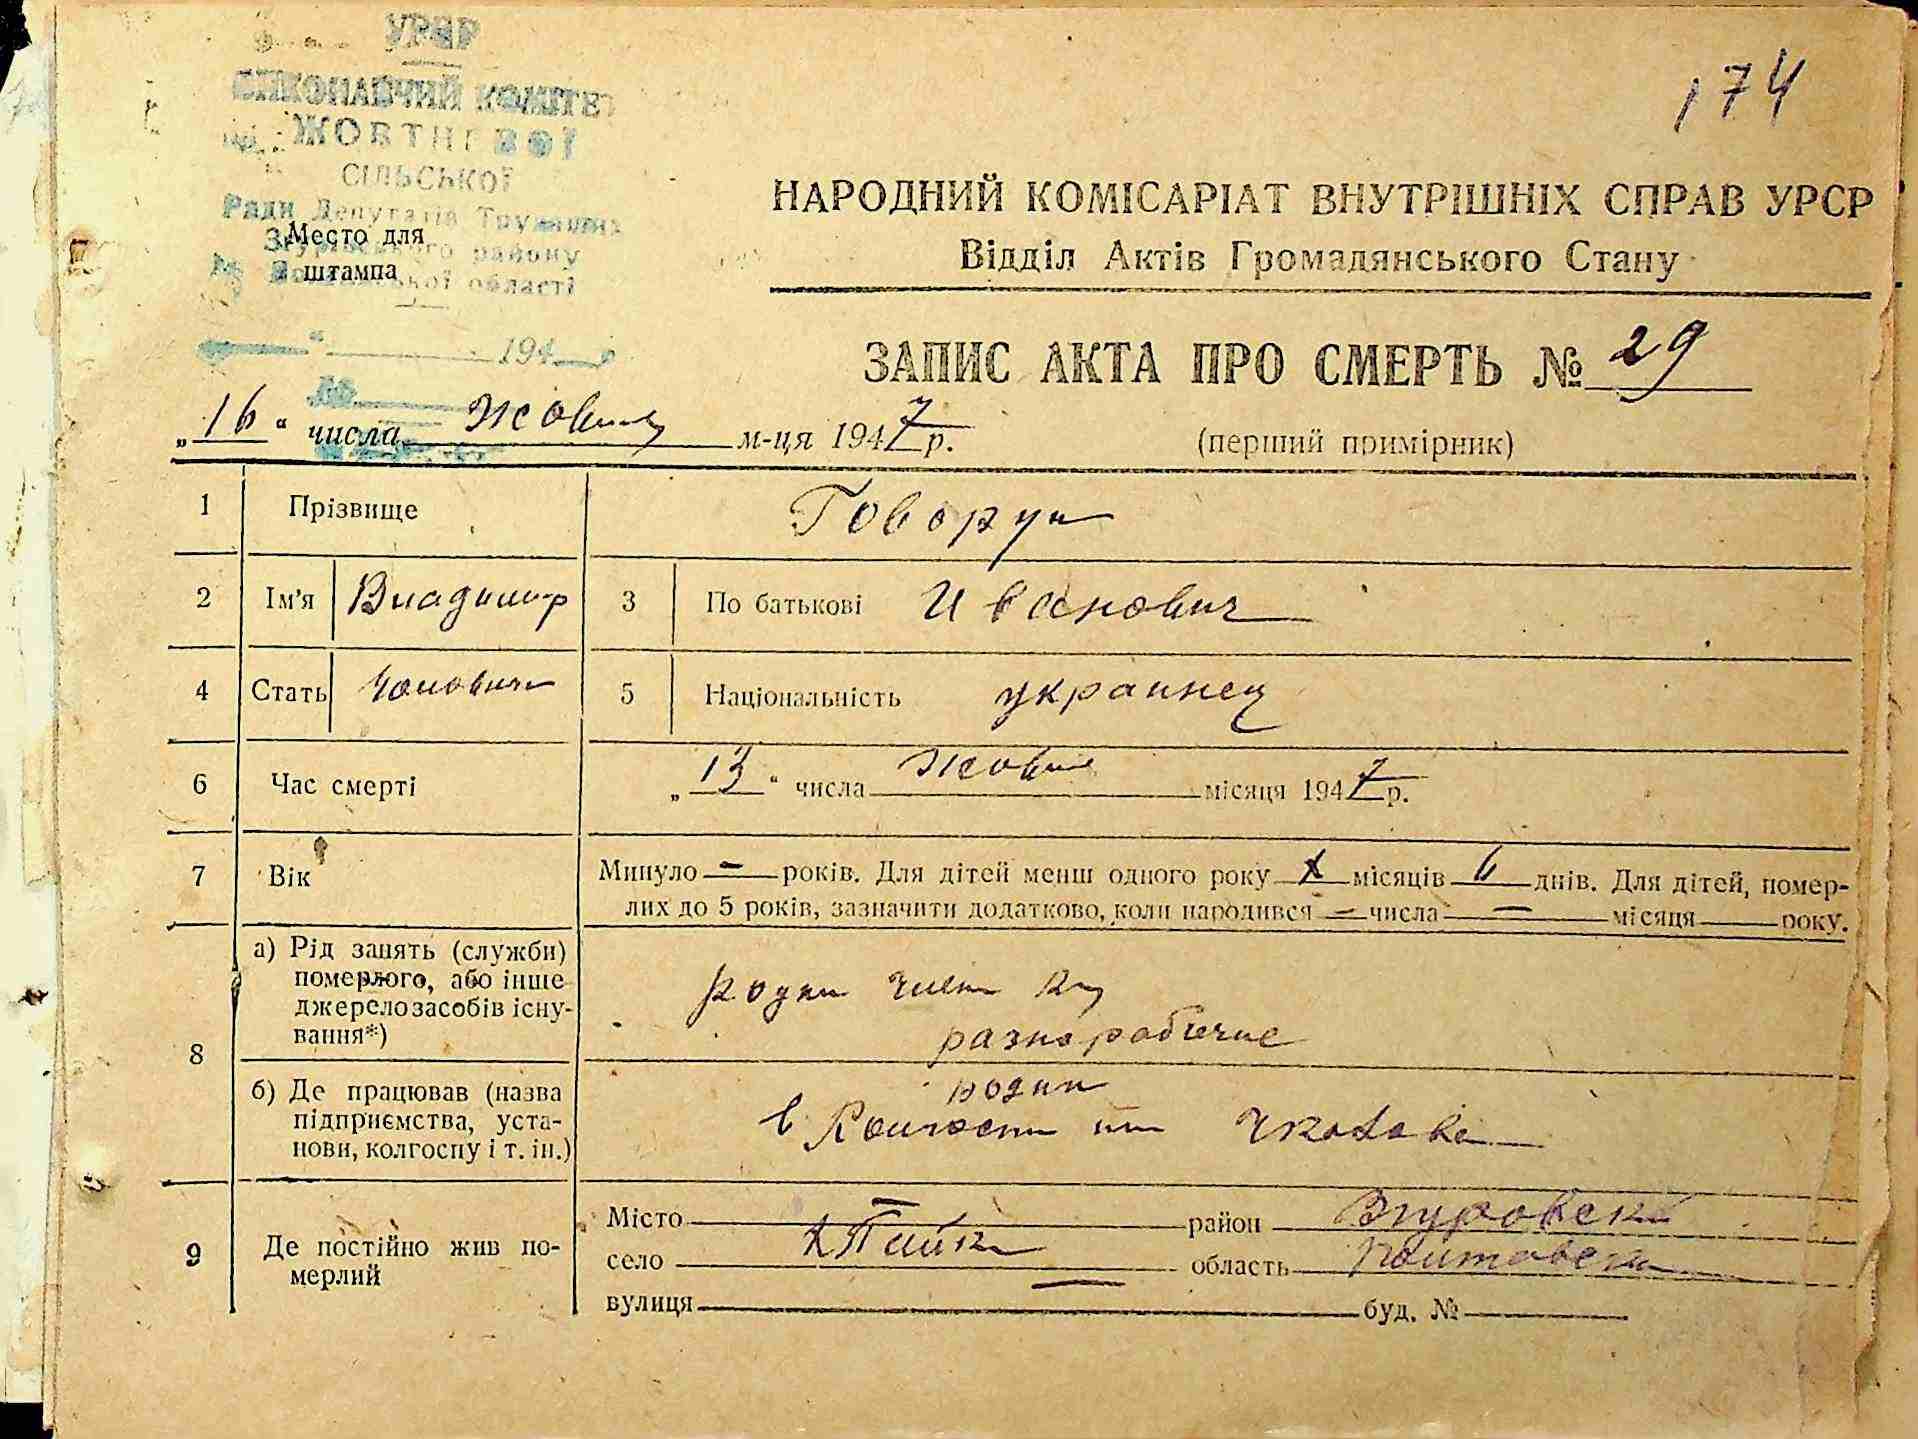 УРСР
ВИКОНАВЧИЙ КОМІТЕТ
ЖОВТНЕВОЇ
СІЛЬСЬКОЇ
Ради Депутатів Трудящих
Згурівського району
Полтавської області
Место для
штампа
174
НАРОДНИЙ КОМІСАРІАТ ВНУТРІШНІХ СПРАВ УРСР
Відділ Актів Громадянського Стану
194
ЗАПИС АКТА ПРО СМЕРТЬ № 29
„16“ числа Жовтня м-ця 1947 р.
(перший примірник)
1 Прізвище Говорун
2 Ім'я Владимир 3 По батькові Иванович
4 Стать Чоловіча 5 Національність украинец
6 Час смерті „13“ числа Жовтня місяця 1947 р.
7 Вік Минуло — років. Для дітей менш одного року X місяців 6 днів. Для дітей, помер-
лих до 5 років, зазначити додатково, коли народився — числа — місяця року.
8 а) Рід занять (служби)
померлого, або інше
джерело засобів існу-
вання*)
разнорабочие
б) Де працював (назва
підприємства, уста-
нови, колгоспу і т. ін.)
в Колгоспи им Чкалова
9 Де постійно жив по-
мерлий
Місто — район Згуровский
село область Полтавская
вулиця — буд. №